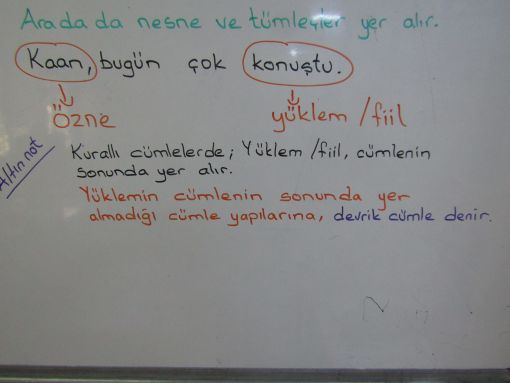 Arada da nesne ve tümleçler yer alır.
Kaan, bugün çok konuştu.
Özne yüklem /fiil
Altın not
Kurallı cümlelerde; Yüklem /fiil, cümlenin
sonunda yer alır.
Yüklemin cümlenin sonunda yer
almadığı cümle yapılarına, devrik cümle denir.